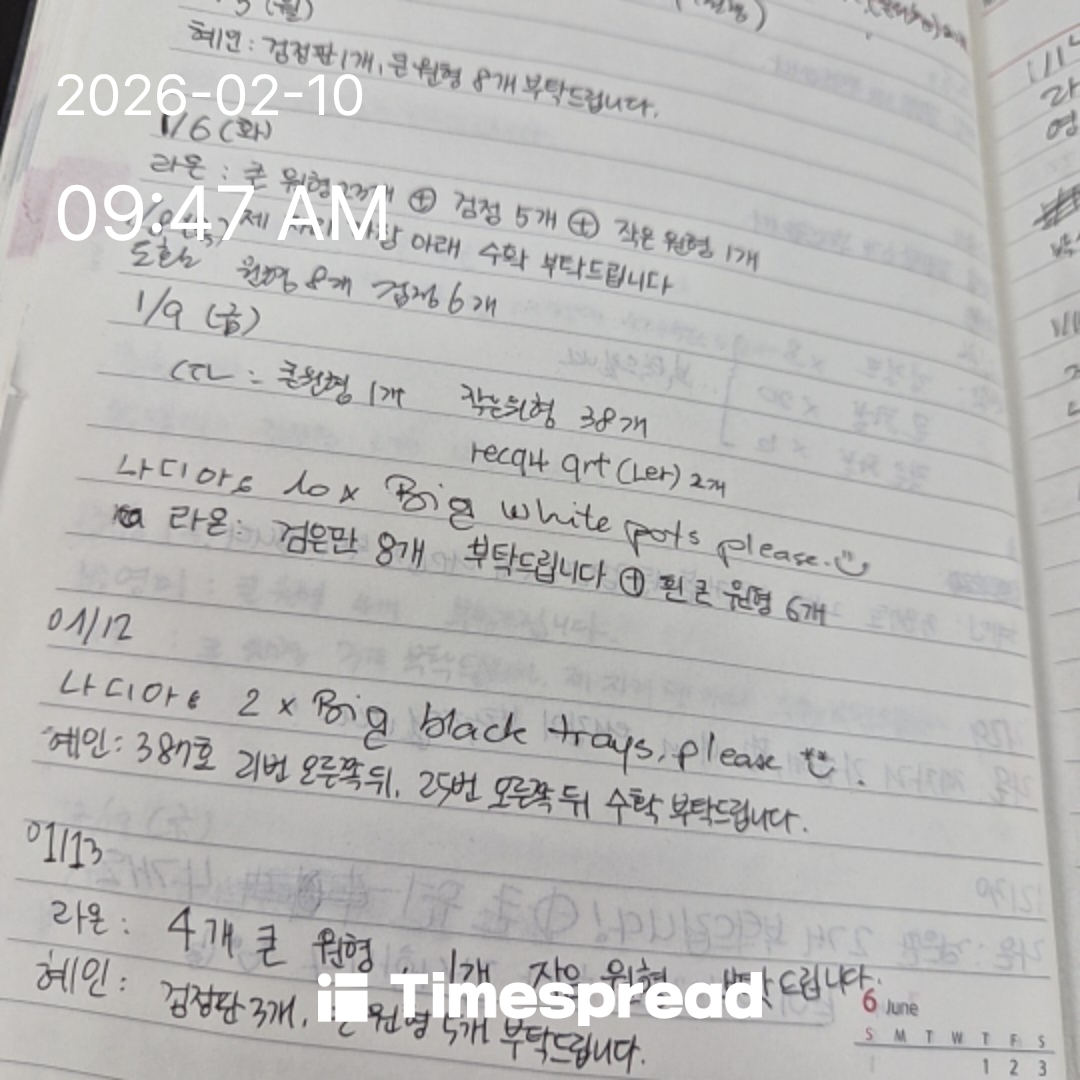 2026-02-10
09:47 AM
5 (월)
혜인: 검정판 1개, 큰 원형 8개 부탁드립니다.
1/6 (화)
라온: 큰 원형 ⊕ 검정 5개 ⊕ 작은 원형 1개
제 아래 수확 부탁드립니다
원형 8개 검정 6개
1/9 (금)
큰원형 1개 작은원형 38개
2개
나디아: 10 x Big white pots please.
라온: 검은판 8개 부탁드립니다 ⊕ 흰 큰 원형 6개
01/12
나디아: 2 x Big black trays, please
혜인: 387호 21번 오른쪽 뒤, 25번 오른쪽 뒤 수확 부탁드립니다.
01/13
라온: 4개 큰 원형, 1개 작은 원형 부탁드립니다.
혜인: 검정판 3개, 큰 원형 5개 부탁드립니다.
Timespread
6 June
S M T W T F S
1 2 3